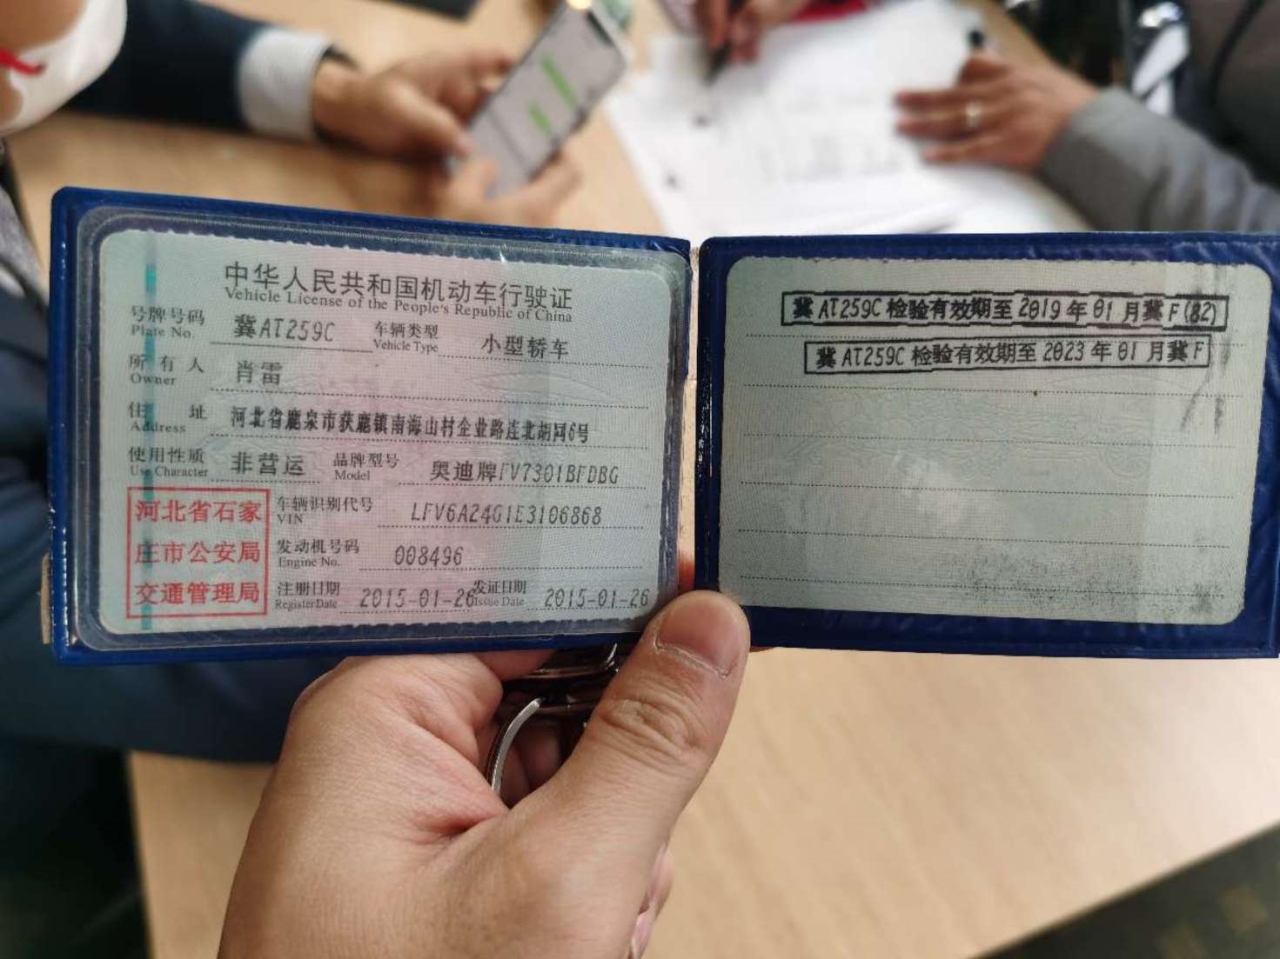 中华人民共和国机动车行驶证
Vehicle License of the People's Republic of China
号牌号码 冀AT259C 车辆类型 小型轿车
Plate No. Vehicle Type
所有人 肖雷
Owner
住址 河北省鹿泉市获鹿镇南海山村企业路连北胡同6号
Address
使用性质 非营运 品牌型号 奥迪牌FV7301BFDBG
Use Character Model
河北省石家
庄市公安局
交通管理局
车辆识别代号 LFV6A24G1E3106868
VIN
发动机号码 008496
Engine No.
注册日期 2015-01-26 发证日期 2015-01-26
Register Date Issue Date
冀AT259C 检验有效期至 2019 年 01 月冀 F(82)
冀AT259C 检验有效期至 2023 年 01 月冀 F